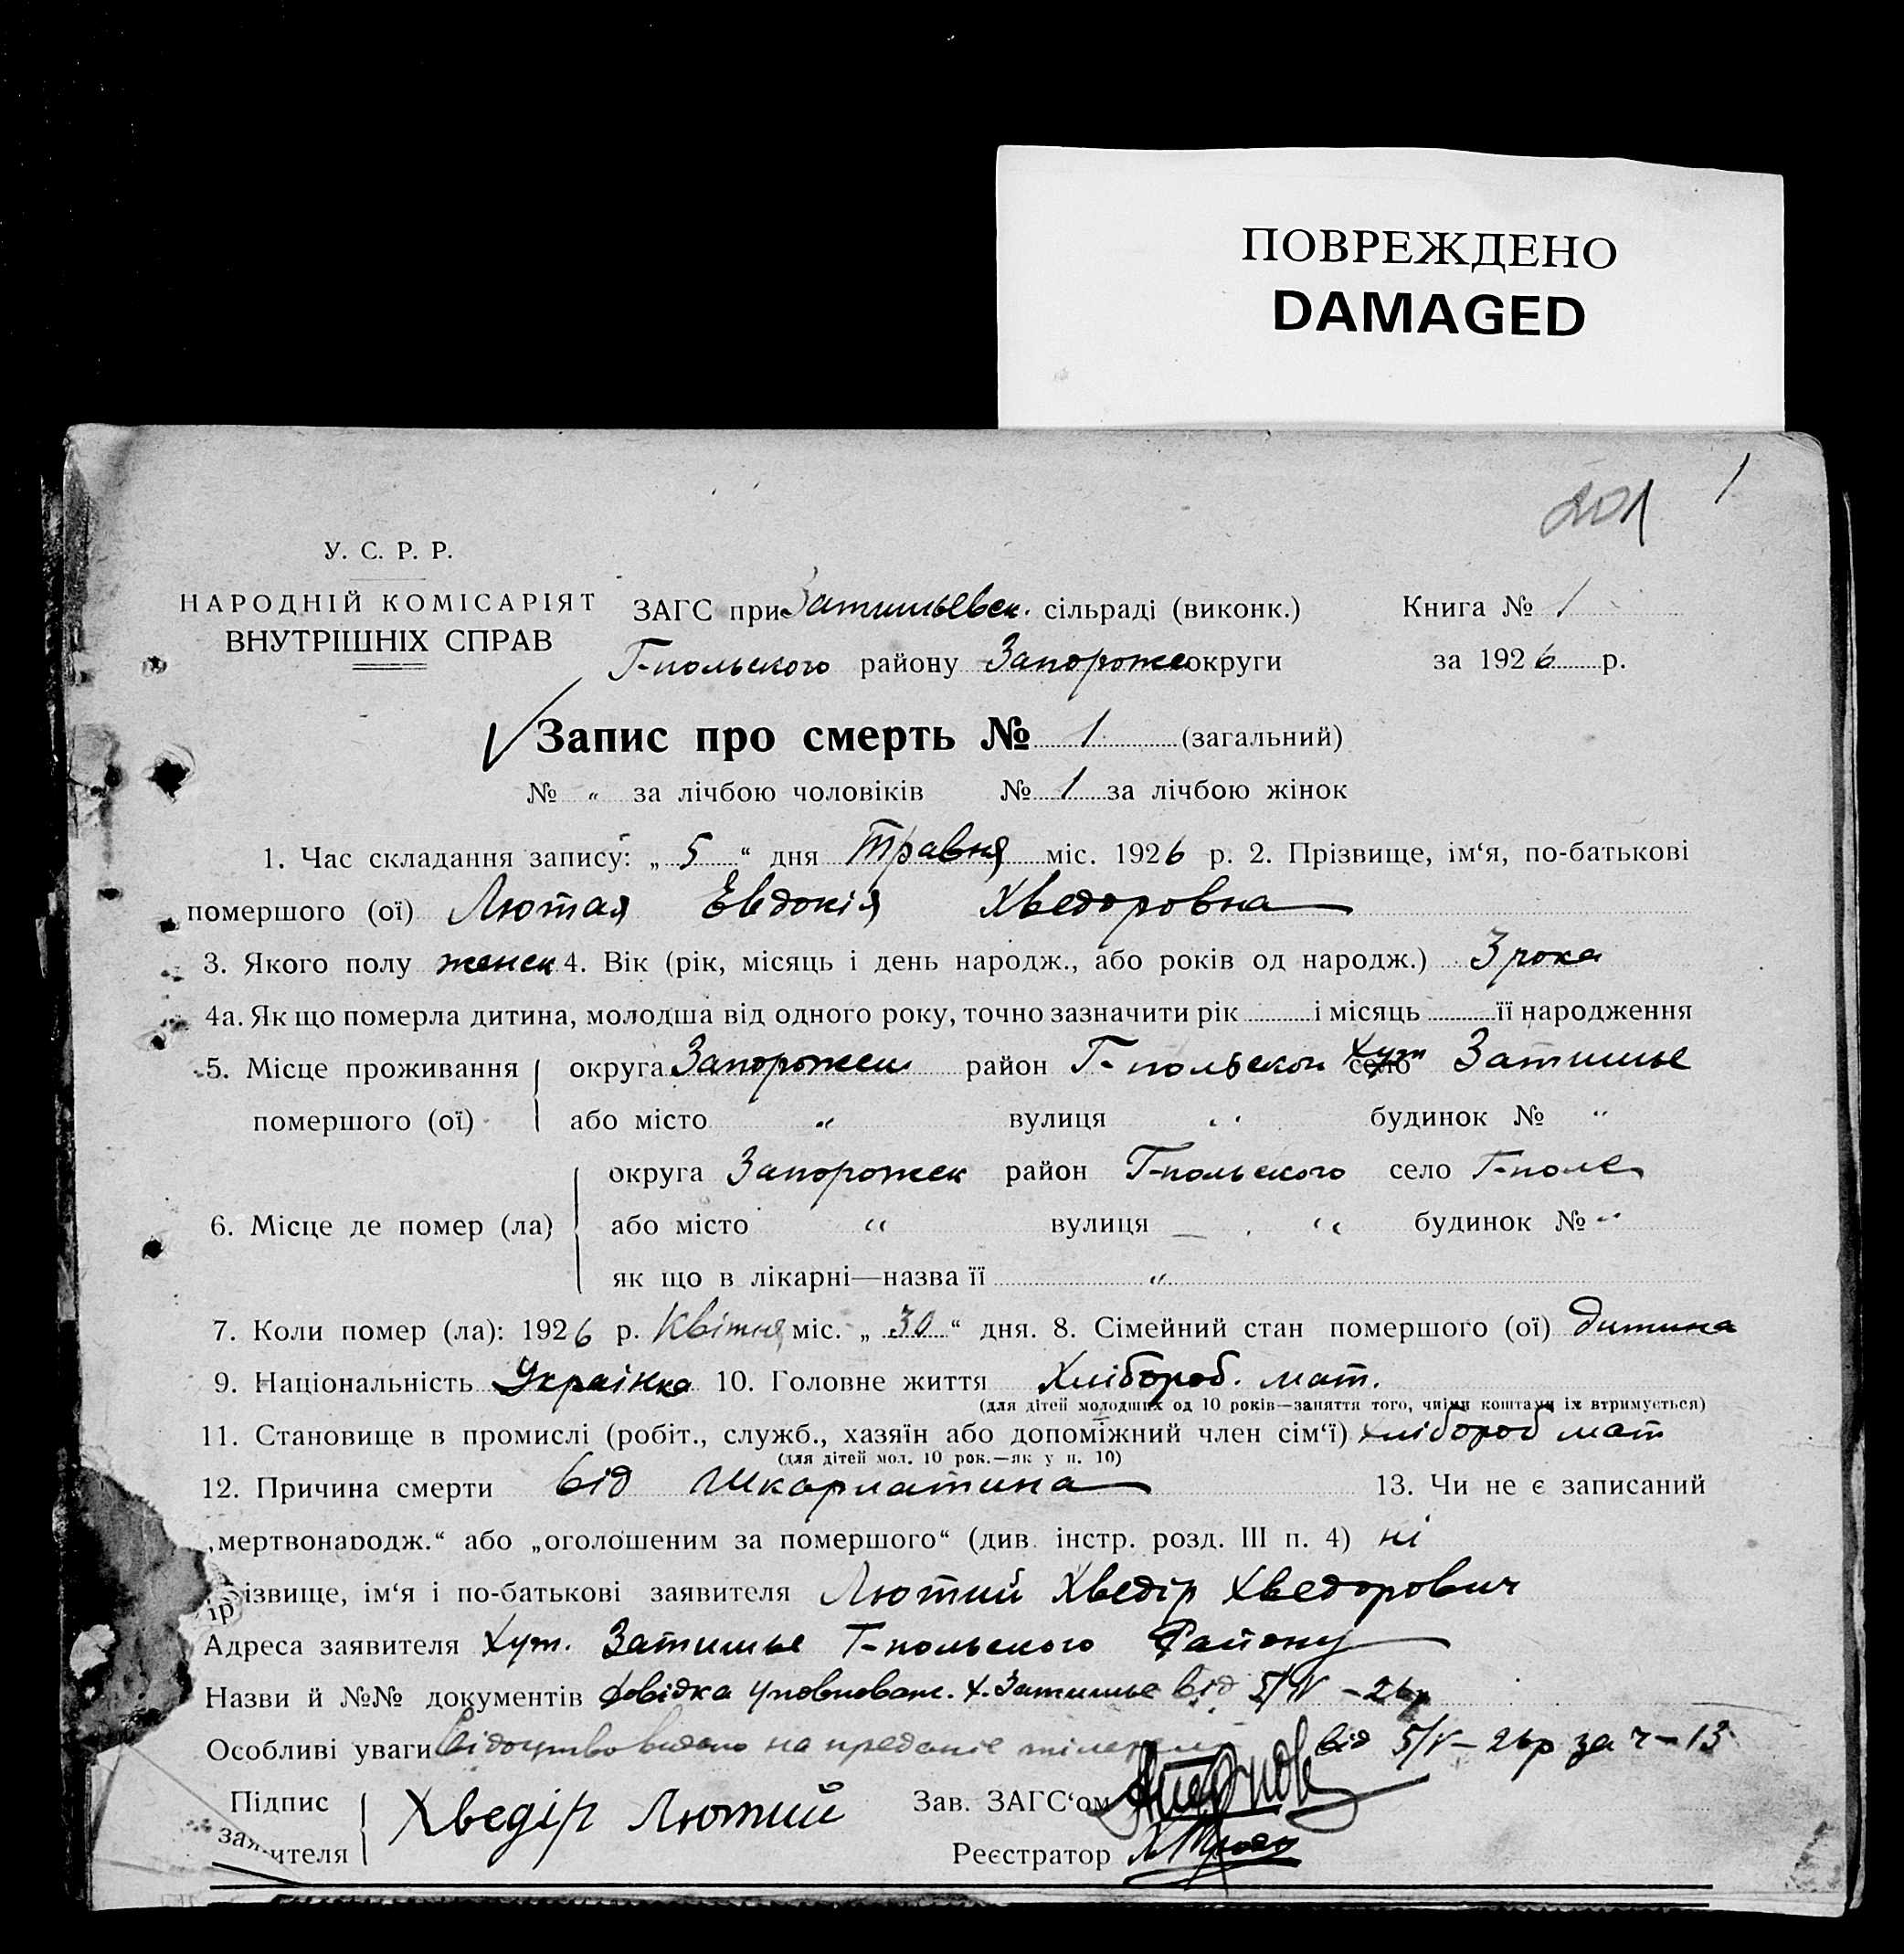 ПОВРЕЖДЕНО
DAMAGED
1
201
У. С. Р. Р.
НАРОДНІЙ КОМІСАРІЯТ
ВНУТРІШНІХ СПРАВ
ЗАГС при Затишьевск. сільраді (виконк.) Книга № 1
Г-польского району Запорожс округи за 1926 р.
Запис про смерть № 1 (загальний)
№ „ за лічбою чоловіків № 1 за лічбою жінок
1. Час складання запису: „ 5 “ дня Травня міс. 1926 р. 2. Прізвище, ім‘я, по-батькові
помершого (ої) Лютая Евдокія Хведоровна
3. Якого полу женск 4. Вік (рік, місяць і день народж., або років од народж.) 3 рока
4а. Як що померла дитина, молодша від одного року, точно зазначити рік і місяць її народження
5. Місце проживання округа Запорожск район Г-польской село хут Затишье
помершого (ої) або місто „ вулиця „ будинок № „
округа Запорожск район Г-польского село Г-поле
6. Місце де помер (ла) або місто „ вулиця „ будинок № „
як що в лікарні—назва її „
7. Коли помер (ла): 1926 р. Квітня міс. „ 30 “ дня. 8. Сімейний стан помершого (ої) дитина
9. Національність Українка 10. Головне життя Хлібороб. мат.
(для дітей молодших од 10 років—заняття того, чиїми коштами їх втримується)
11. Становище в промислі (робіт., служб., хазяїн або допоміжний член сім‘ї) хлібороб мат
(для дітей мол. 10 рок.—як у п. 10)
12. Причина смерти від Шкарлатина 13. Чи не є записаний
„мертвонародж.“ або „оголошеним за помершого“ (див. інстр. розд. III п. 4) ні
різвище, ім‘я і по-батькові заявителя Лютий Хведір Хведорович
Адреса заявителя Хут. Затишье Г-польского Району
Назви й №№ документів Довідка уповноваж. х. Затишье від 5/V - 26р
Особливі уваги на преданіе від 5/V - 26р за ч - 13
Підпис заявителя Хведір Лютий Зав. ЗАГС‘ом
Реєстратор